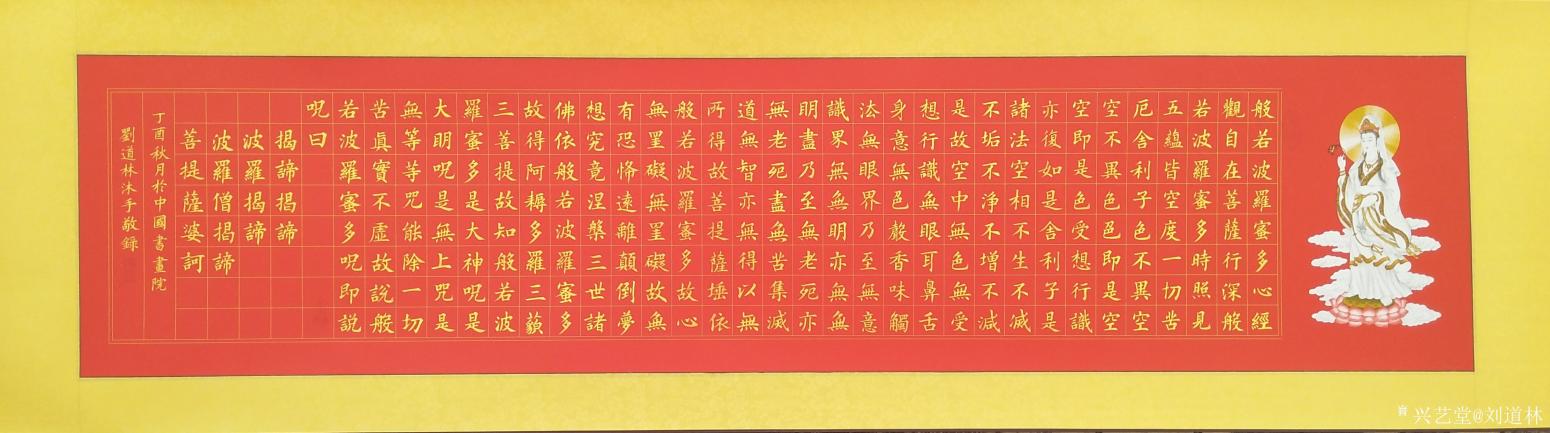 般若波羅蜜多心經
觀自在菩薩行深般
若波羅蜜多時照見
五蘊皆空度一切苦
厄舍利子色不異空
空不異色色即是空
空即是色受想行識
亦復如是舍利子是
諸法空相不生不滅
不垢不淨不增不減
是故空中無色無受
想行識無眼耳鼻舌
身意無色聲香味觸
法無眼界乃至無意
識界無無明亦無無
明盡乃至無老死亦
無老死盡無苦集滅
道無智亦無得以無
所得故菩提薩埵依
般若波羅蜜多故心
無罣礙無罣礙故無
有恐怖遠離顛倒夢
想究竟涅槃三世諸
佛依般若波羅蜜多
故得阿耨多羅三藐
三菩提故知般若波
羅蜜多是大神呪是
大明呪是無上咒是
無等等咒能除一切
苦眞實不虛故說般
若波羅蜜多呪即說
呪曰
揭諦揭諦
波羅揭諦
波羅僧揭諦
菩提薩婆訶
丁酉秋月於中國書畫院
劉道林沐手敬錄
兴艺堂@刘道林